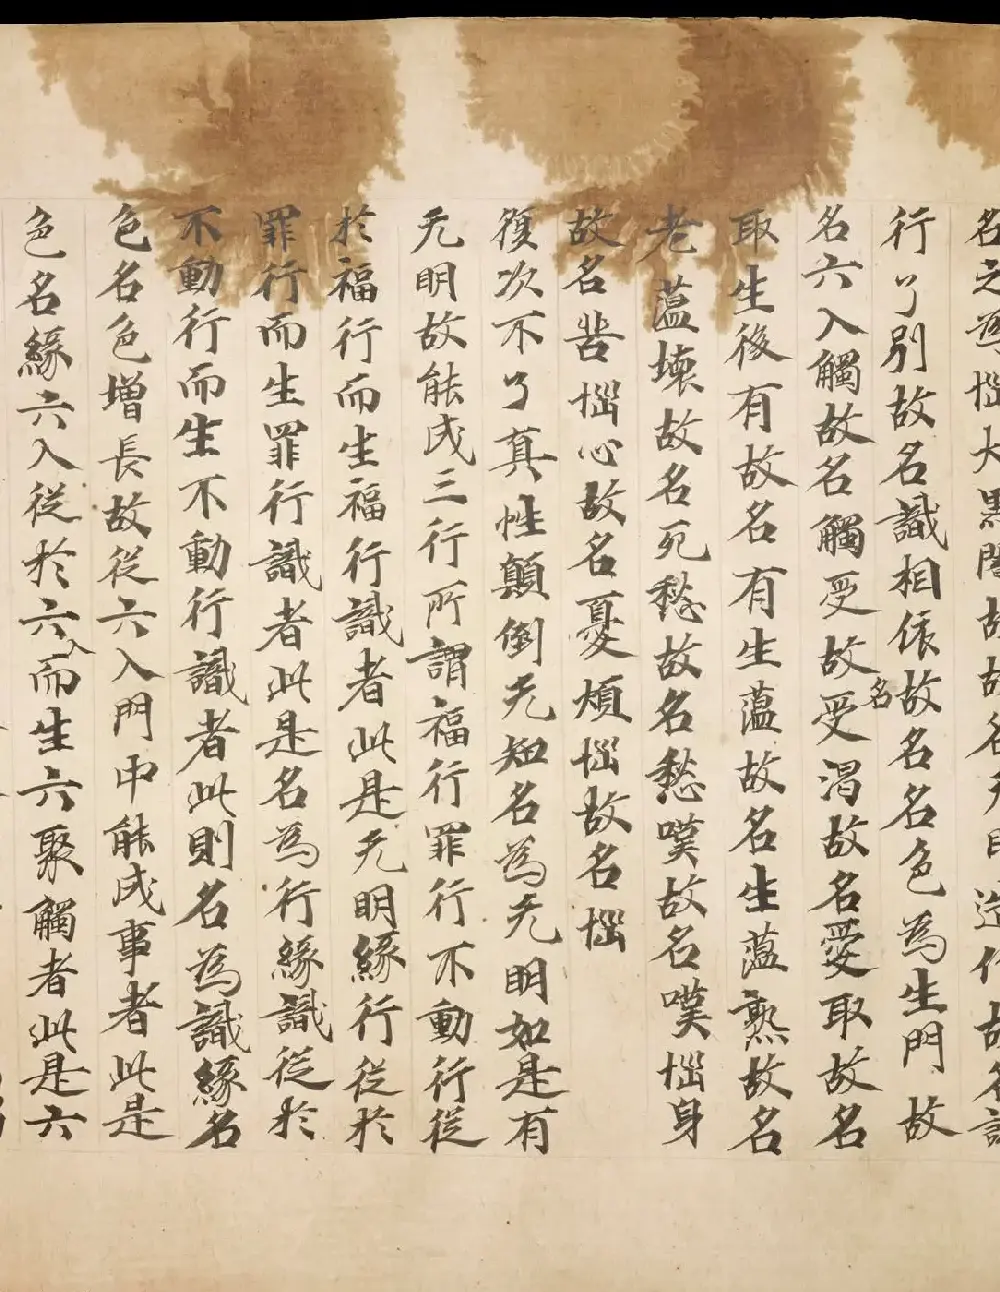 名之為惱大黑闇故故名无明造作故名諸
行了別故名識相依故名名色為生門故
名六入觸故名觸受故名受渴故名愛取故名
取生後有故名有生薀故名生薀熟故名
老薀壞故名死愁故名愁嘆故名嘆惱身
故名苦惱心故名憂煩惱故名惱
復次不了真性顛倒无知名為无明如是有
无明故能成三行所謂福行罪行不動行從
於福行而生福行識者此是无明緣行從於
罪行而生罪行識者此是名為行緣識從於
不動行而生不動行識者此則名為識緣名
色名色增長故從六入門中能成事者此是
色名緣六入從於六入而生六聚觸者此是六